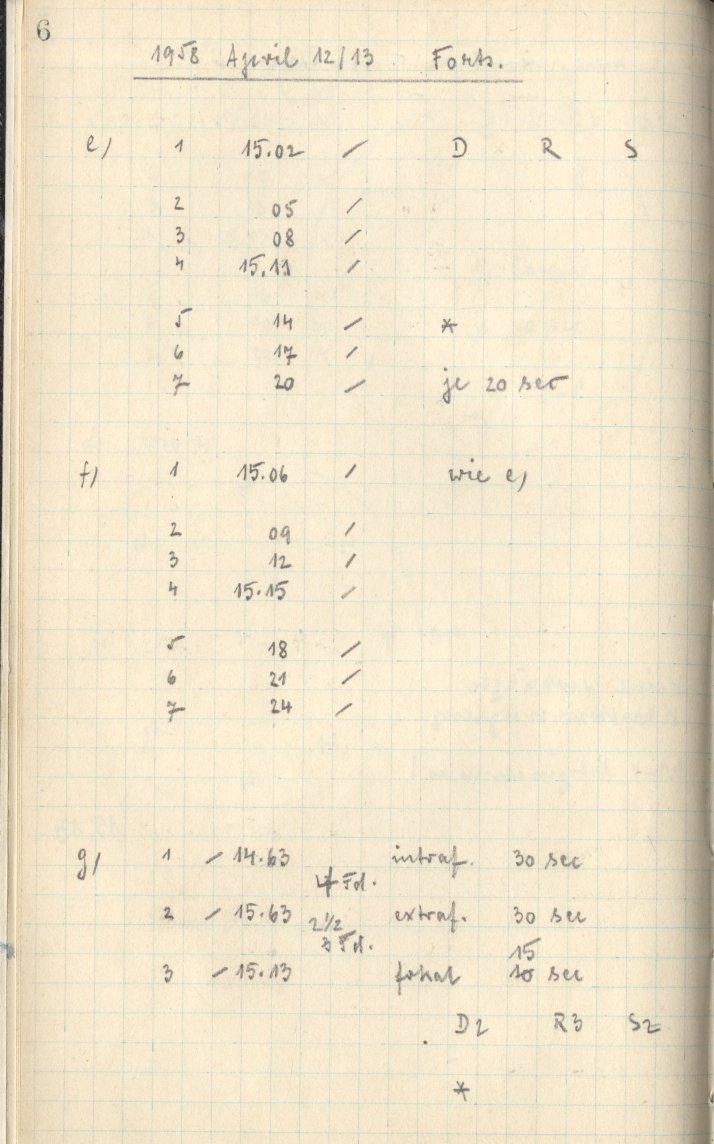 6
1958 April 12/13 Forts.
e) 1 15.02 / D R S
2 05 /
3 08 /
4 15.11 /
5 14 / *
6 17 /
7 20 / je 20 sec
f) 1 15.06 / wie e)
2 09 /
3 12 /
4 15.15 /
5 18 /
6 21 /
7 24 /
g) 1 / 14.63 intraf. 30 sec
Fd.
2 / 15.63 2 1/2 extraf. 30 sec
3 Fd. 15
3 / 15.13 fokal 10 sec
D2 R3 S2
*